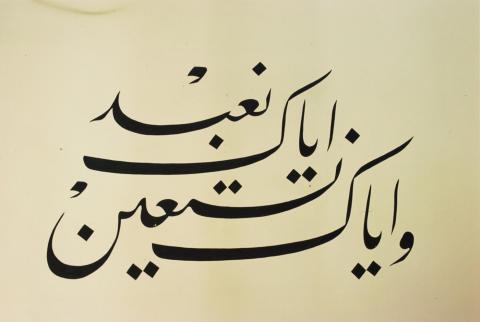 ایاک نعبد
و ایاک نستعین